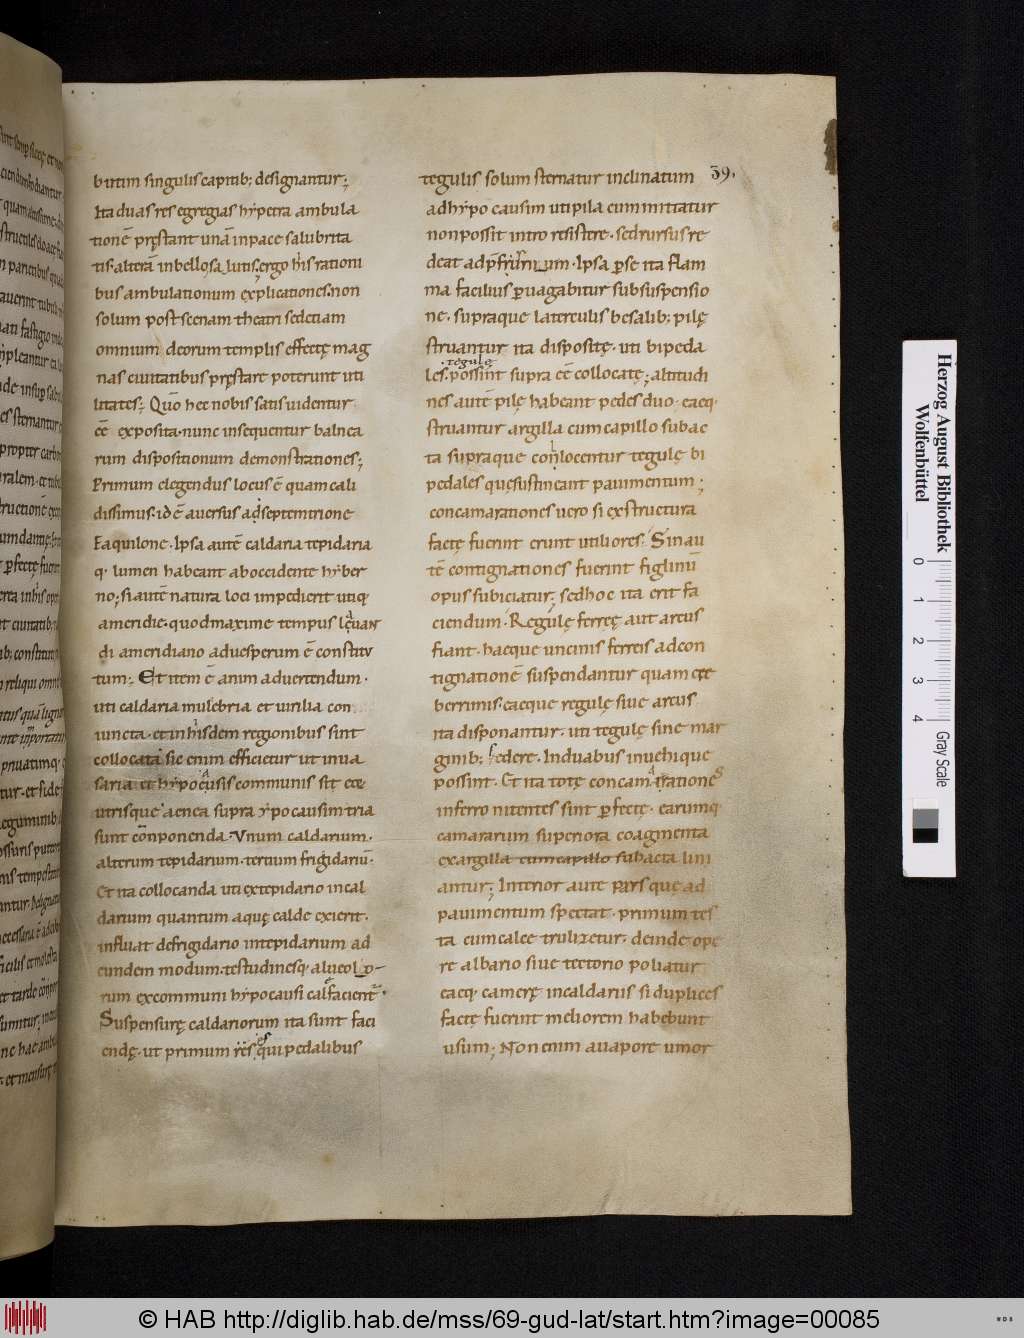 bitim singulis capitib; designantur;
Ita duas res egregias hypetra ambula
tionē pręstant unā in pace salubrita
tis· alterā in bello salutis, ergo his rationi
bus ambulationum explicationes non
solum post scenam theatri sed etiam
omnium deorum templis effectę mag
nas ciuitatibus pręstare poterunt uti
litates; Quō hec nobis satis uidentur
eē exposita· nunc insequentur balnea
rum dispositionum demonstrationes;
Primum elegendus locus ē quam cali
dissimus· id ē auersus ad septemtrione
Eaquilone· Ipsa autē caldaria tepidaria
q· lumen habeant ab occidente hyber
no; si autē natura loci impedierit utiq
a meridie· quod maxime tempus lauan
di a meridiano ad uesperum ē constitu
tum; Et item ē animaduertendum·
uti caldaria mulebria et uirilia con
iuncta· et in hisdem regionibus sint
collocata sic enim efficietur ut in ua
saria et hypocausis communis sit ete
utrisque aenea supra ypocausim tria
sunt conponenda· Vnum caldarium·
alterum tepidarium· tertium frigidariū·
Et ita collocanda uti ex tepidario in cal
darium quantum aquę calde exierit·
influat de frigidario in tepidarium ad
eundem modum· testudinesq· alueolo
rum ex communi hypocausi calfacient·
Suspensurę caldariorum ita sunt faci
endę· ut primum sesqui pedalibus
tegulis solum sternatur inclinatum 39.
ad hypocausim uti pila cum mittatur
non possit intro resistere· sed rursus re
deat ad pfurnium· Ipsa p se ita flam
ma facilius puagabitur sub suspensio
ne· supraque laterculis besalib; pilę
struantur ita dispositę· uti bipeda
tegulę
les· possint supra eē collocatę; altitudi
nes autē pilę habeant pedes duo· eaeq·
struantur argilla cum capillo subac
ta supraque conlocentur tegulę bi
pedales quę sustineant pauimentum;
concamarationes uero si ex structura
factę fuerint erunt utiliores· Sin au
tē contignationes fuerint figlinū
opus subiciatur; sed hoc ita erit fa
ciendum· Regulę ferreę aut arcus
fiant· haeque uncinis ferreis ad con
tignationē suspendantur quam cre
berrimis· eaeque regulę siue arcus
ita disponantur· uti tegulę sine mar
ginib; sedere· In duabus inuehique
possint· Et ita totę concamarationes
in ferro nitentes sint pfectę· earumq
camararum superiora coagmenta
ex argilla cum capillo subacta lini
antur; Interior aute pars que ad
pauimentum spectat· primum tes
ta cum calce trulizetur· deinde ope
re albario siue tectorio poliatur
eaeq· camerę in caldariis si duplices
factę fuerint meliorem habebunt
usum; Non enim a uapore umor
Herzog August Bibliothek
Wolfenbüttel
0 1 2 3 4 Gray Scale
© HAB http://diglib.hab.de/mss/69-gud-lat/start.htm?image=00085